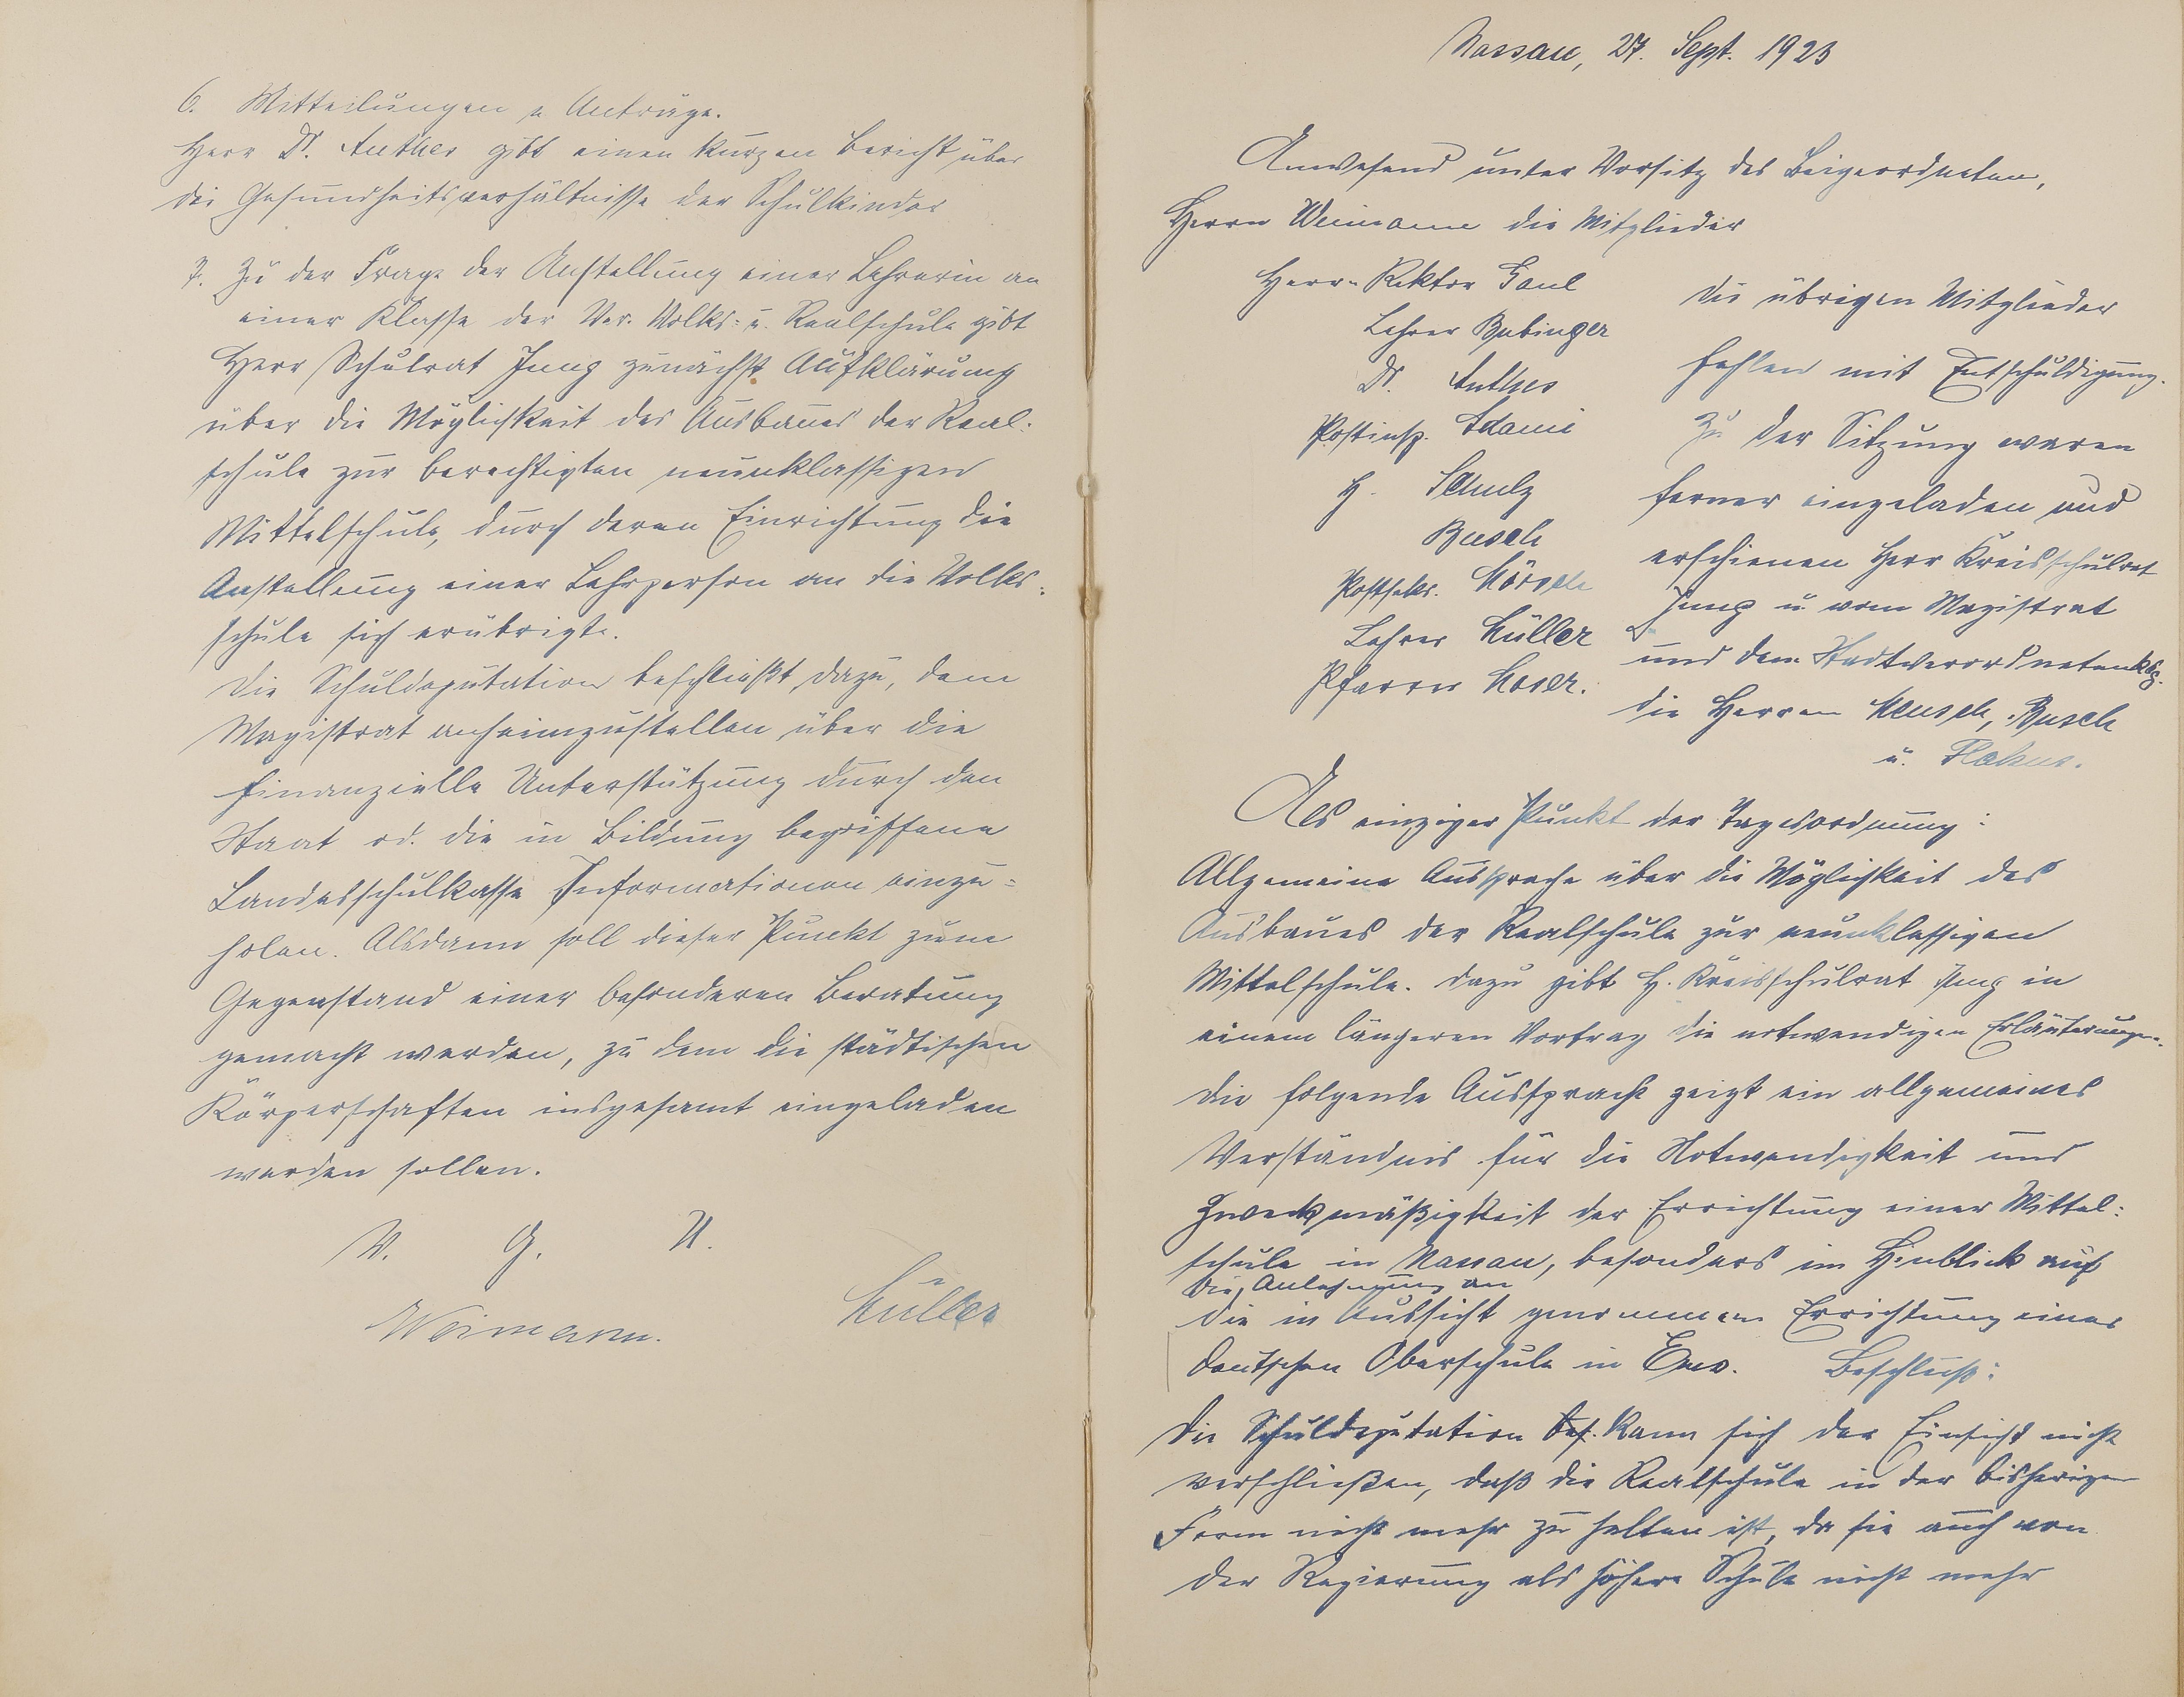 6. Mitteilungen u. Anträge.
Herr Dr. Anthes gibt einen kurzen Bericht über
die Gesundheitsverhältnisse der Schulkinder
7. Zu der Frage der Anstellung einer Lehrerin an
einer Klasse der Ver. Volks- u. Realschule gibt
Herr Schulrat Jung zunächst Aufklärung
über die Möglichkeit des Ausbaues der Real-
schule zur berechtigten neunklassigen
Mittelschule, durch deren Einrichtung die
Anstellung einer Lehrperson an die Volks-
schule sich erübrigte.
Die Schuldeputation beschließt dazu, dem
Magistrat anheimzustellen über die
finanzielle Unterstützung durch den
Staat od. die in Bildung begriffene
Landesschulkasse Informationen einzu-
holen. Alsdann soll dieser Punkt zum
Gegenstand einer besonderen Beratung
gemacht werden, zu dem die städtischen
Körperschaften insgesamt eingeladen
werden sollen.
V. G. U.
Weimann. Müller
Nassau, 27. Sept. 1923
Anwesend unter Vorsitz des Beigeordneten,
Herrn Weimann die Mitglieder
Herr Rektor Gaul
Lehrer Bubinger
Dr. Anthes
Postinsp. Adami
H. Schulz
Busch
Postsekr.
Lehrer Müller
Pfarrer Moser.
die übrigen Mitglieder
fehlen mit Entschuldigung.
Zu der Sitzung waren
ferner eingeladen und
erschienen Herr Kreisschulrat
Jung u. vom Magistrat
und dem
die Herren Meusch, Busch
u.
Als einziger Punkt der Tagesordnung:
Allgemeine Aussprache über die Möglichkeit des
Ausbaues der Realschule zur neunklassigen
Mittelschule. Dazu gibt H. Kreisschulrat Jung in
einem längeren Vortrag die notwendigen Erläuterungen.
Die folgende Aussprache zeigt ein allgemeines
Verständnis für die Notwendigkeit und
Zweckmäßigkeit der Errichtung einer Mittel-
schule in Nassau, besonders im Hinblick auf
die Anlehnung an
die in Aussicht genommene Errichtung einer
deutschen Oberschule in Ems. Beschluß:
Die Schuldeputation kann sich der Einsicht nicht
verschließen, daß die Realschule in der bisherigen
Form nicht mehr zu halten ist, da sie auch von
der Regierung als höhere Schule nicht mehr